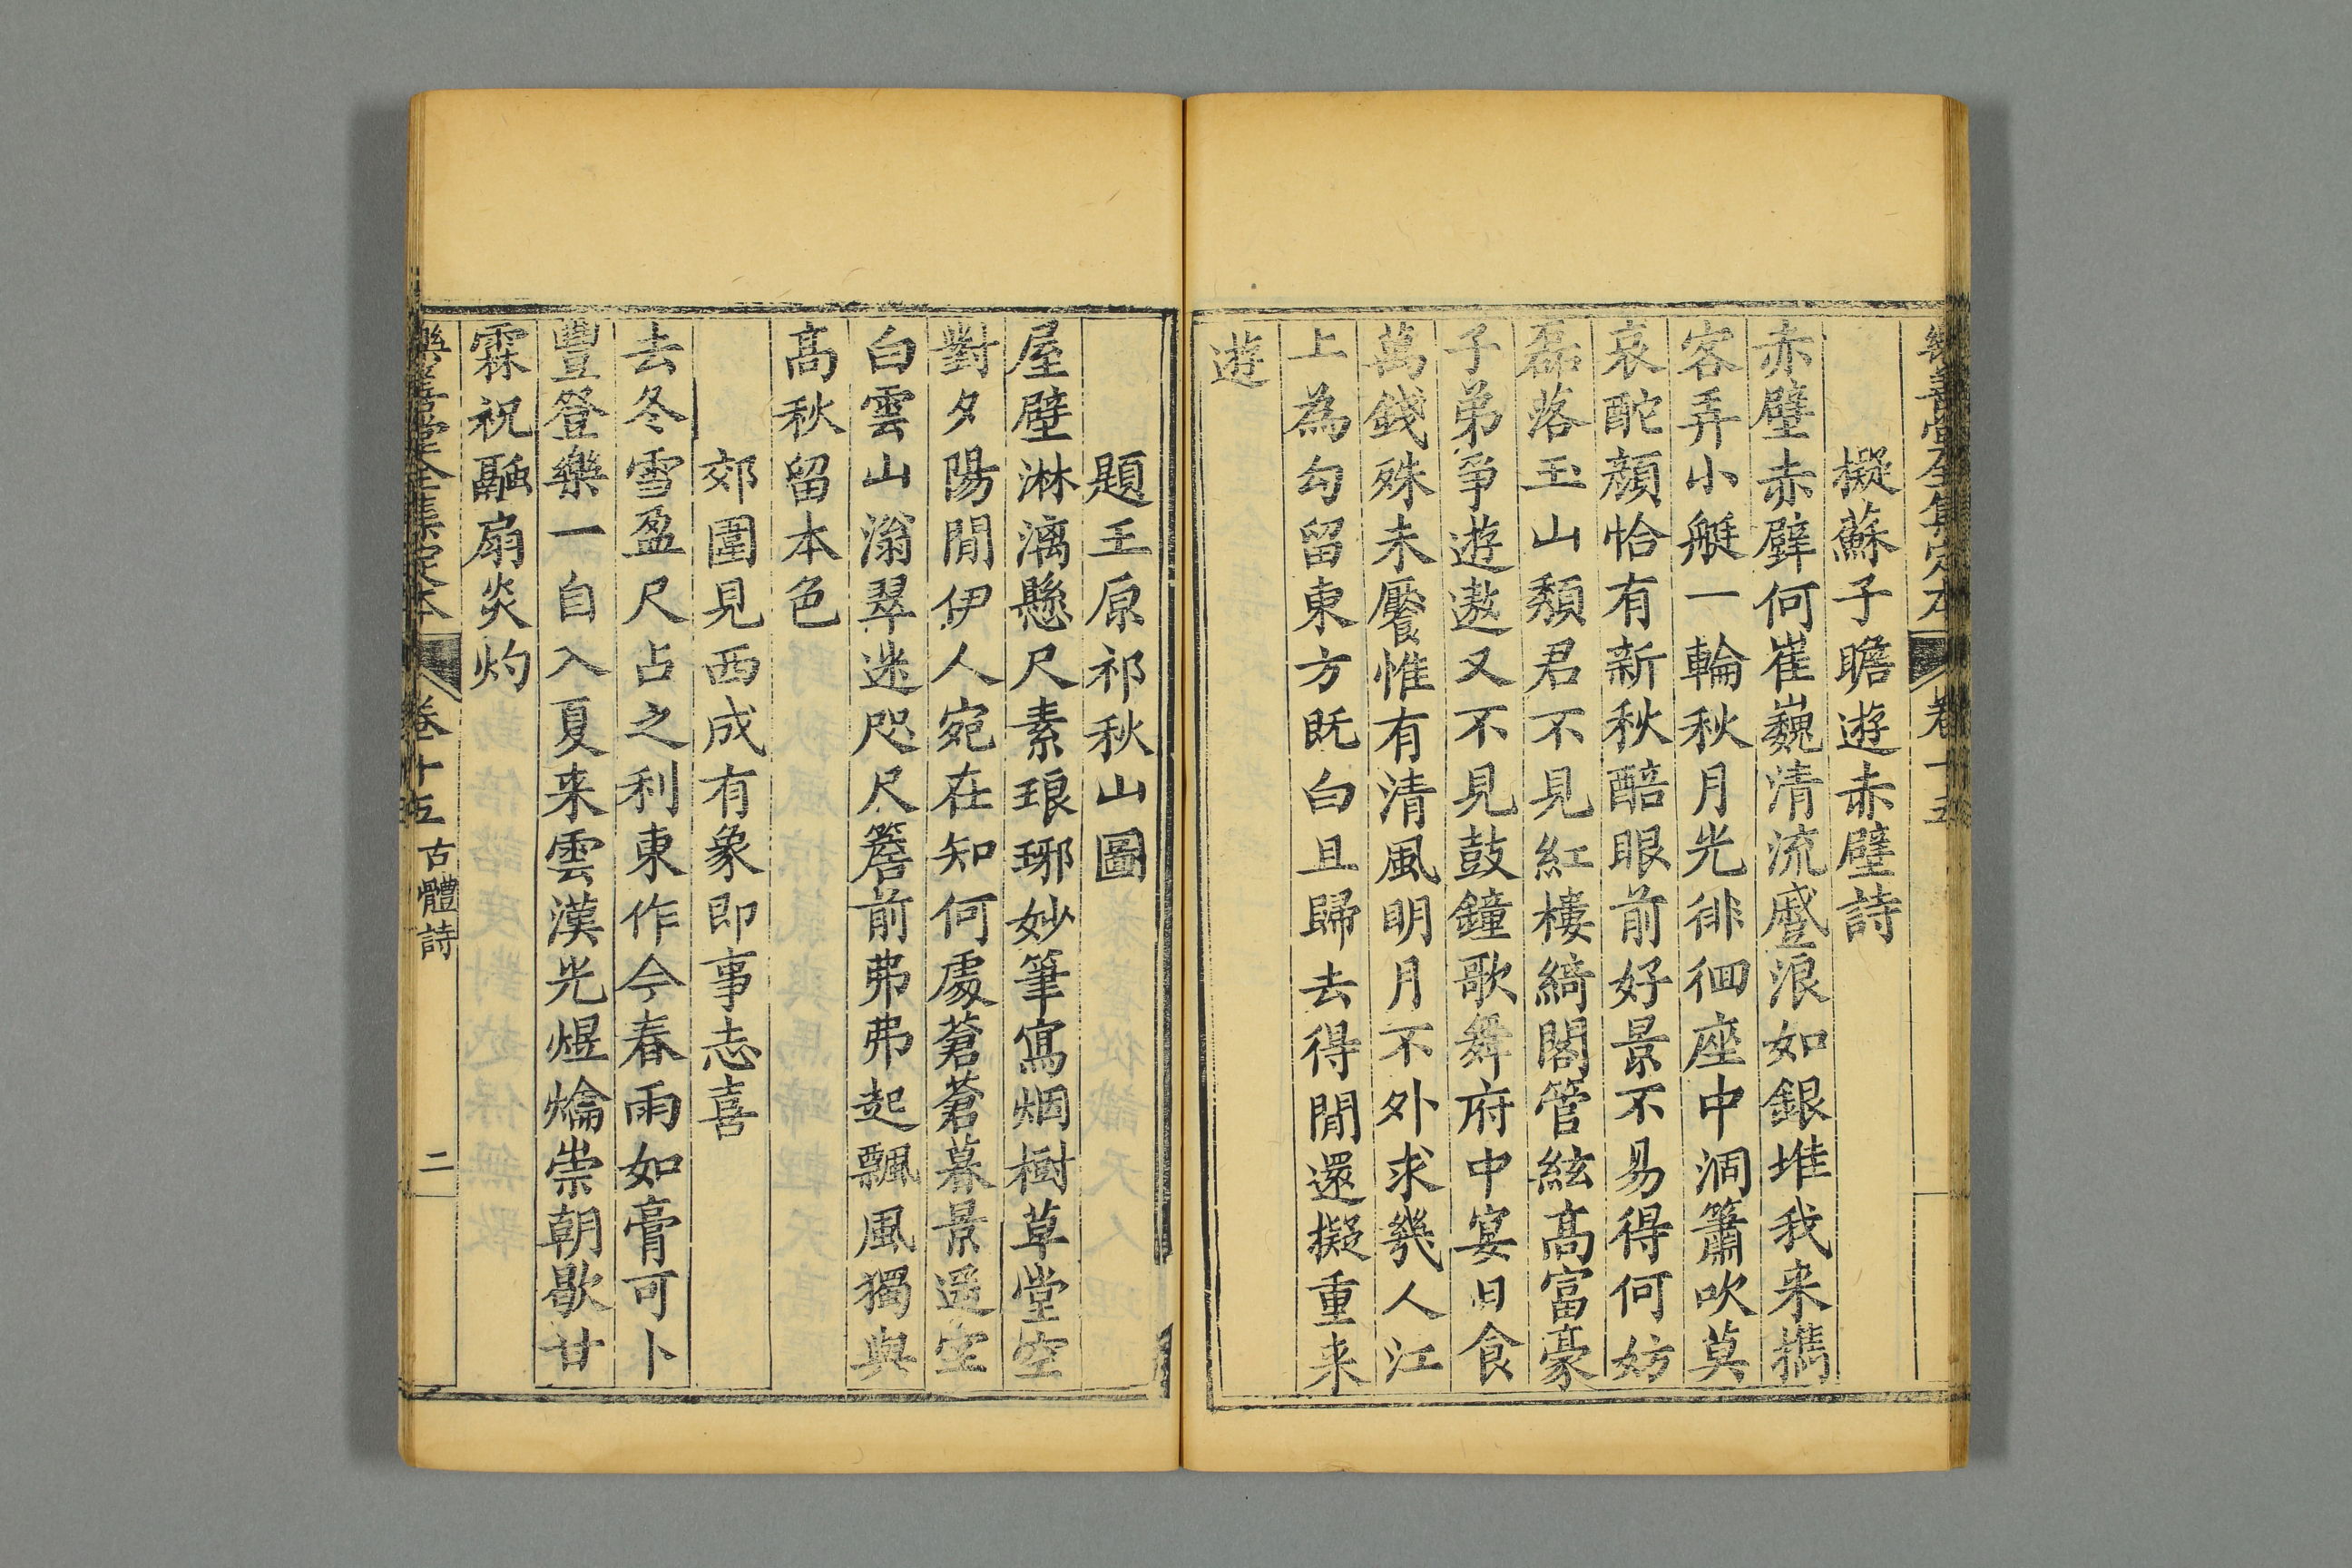 樂善堂全集定本 卷十五
擬蘇子瞻遊赤壁詩
赤壁赤壁何崔巍清流蹙浪如銀堆我来攜
客弄小艇一輪秋月光徘徊座中洞簫吹莫
哀酡顔恰有新秋醅眼前好景不易得何妨
磊落玉山頽君不見紅樓綺閣管絃高富豪
子弟爭遊遨又不見鼓鐘歌舞府中宴日食
萬錢殊未饜惟有清風明月不外求幾人江
上為勾留東方既白且歸去得閒還擬重来
遊
題王原祁秋山圖
屋壁淋漓懸尺素琅琊妙筆寫烟樹草堂空
對夕陽閒伊人宛在知何處蒼蒼暮景遥空
白雲山滃翠迷咫尺簷前弗弗起飄風獨與
高秋留本色
郊圍見西成有象即事志喜
去冬雪盈尺占之利東作今春雨如膏可卜
豐登樂一自入夏来雲漢光煜爚崇朝歇甘
霖祝融扇炎灼
樂善堂全集定本 卷十五 古體詩 二